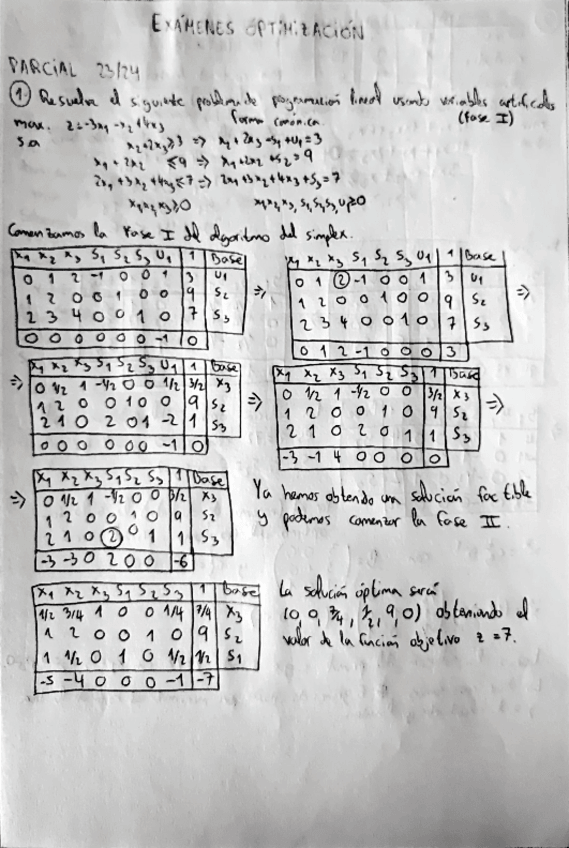 EXÁMENES OPTIMIZACIÓN
PARCIAL 23/24
① Resuelva el siguiente problema de programación lineal usando variables artificiales
max. z=-3x₁-x₂+4x₃ forma canónica. (Fase I)
s.a x₂+2x₃≥3 ⇒ x₂+2x₃-s₁+u₁=3
x₁+2x₂ ≤9 ⇒ x₁+2x₂+s₂=9
2x₁+3x₂+4x₃≤7 ⇒ 2x₁+3x₂+4x₃+s₃=7
x₁,x₂,x₃≥0 x₁,x₂,x₃,s₁,s₂,s₃,u₁≥0
Comenzamos la Fase I del algoritmo del simplex.
x₁ x₂ x₃ s₁ s₂ s₃ u₁ 1 Base
0 1 2 -1 0 0 1 3 u₁
1 2 0 0 1 0 0 9 s₂
2 3 4 0 0 1 0 7 s₃
0 0 0 0 0 0 -1 0
⇒
x₁ x₂ x₃ s₁ s₂ s₃ u₁ 1 Base
0 1 ② -1 0 0 1 3 u₁
1 2 0 0 1 0 0 9 s₂
2 3 4 0 0 1 0 7 s₃
0 1 2 -1 0 0 0 3
⇒
⇒ x₁ x₂ x₃ s₁ s₂ s₃ u₁ 1 Base
0 1/2 1 -1/2 0 0 1/2 3/2 x₃
1 2 0 0 1 0 0 9 s₂
2 1 0 2 0 1 -2 1 s₃
0 0 0 0 0 0 -1 0
⇒
x₁ x₂ x₃ s₁ s₂ s₃ 1 Base
0 1/2 1 -1/2 0 0 3/2 x₃
1 2 0 0 1 0 9 s₂
2 1 0 2 0 1 1 s₃
-3 -1 4 0 0 0 0
⇒
⇒ x₁ x₂ x₃ s₁ s₂ s₃ 1 Base
0 1/2 1 -1/2 0 0 3/2 x₃
1 2 0 0 1 0 9 s₂
2 1 0 ② 0 1 1 s₃
-3 -3 0 2 0 0 -6
Ya hemos obtenido una solución factible
y podemos comenzar la Fase II.
x₁ x₂ x₃ s₁ s₂ s₃ 1 Base
1/2 3/4 1 0 0 1/4 7/4 x₃
1 2 0 0 1 0 9 s₂
1 1/2 0 1 0 1/2 1/2 s₁
-5 -4 0 0 0 -1 -7
La solución óptima será
(0, 0, 7/4, 1/2, 9, 0) obteniendo el
valor de la función objetivo z=7.